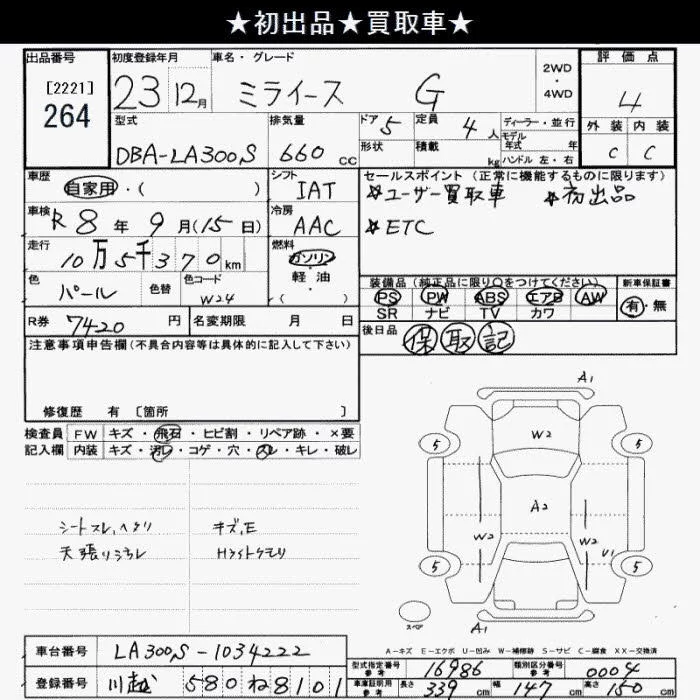 ★初出品★買取車★
出品番号 初度登録年月 車名・グレード 2WD ・ 4WD 評価点
[2221] 264 23 12月 ミライース G 4
型式 排気量 ドア 5 定員 4人 ディーラー・並行 外装 内装
DBA-LA300S 660cc 形状 積載 kg モデル年式 年 ハンドル 左・右 C C
車歴 シフト セールスポイント(正常に機能するものに限ります)
自家用・( ) IAT ☆ユーザー買取車 ☆初出品
車検 R8年9月(15日) 冷房 AAC ☆ETC
走行 10万5千370km 燃料 ガソリン 軽・油 ・( )
色 パール 色替 色コード W24 装備品(純正品に限り○をつけてください) 新車保証書
PS PW ABS エアB AW 有・無
SR ナビ TV カワ
R券 7420円 名変期限 月 日 後日品 保 取 記
注意事項申告欄(不具合内容等は具体的に記入して下さい)
修復歴 有 [箇所 ]
検査員 FW キズ・飛石・ヒビ割・リペア跡・×要
記入欄 内装 キズ・汚レ・コゲ・穴・スレ・キレ・破レ
シートスレ,ヘタリ キズ,E
天張リヨゴレ Hライトクモリ
A1
W2
5 5
A2
W2 W2
U1
5 5
スペア A1
A-キズ E-エクボ U-凹み W-補修跡 S-サビ C-腐食 XX-交換済
車台番号 LA300S-1034222
型式指定番号 参考 16986 類別区分番号 参考 0004
登録番号 川越 580ね8101
車庫証明用 参考 長さ 339cm 幅 147cm 高さ 150cm